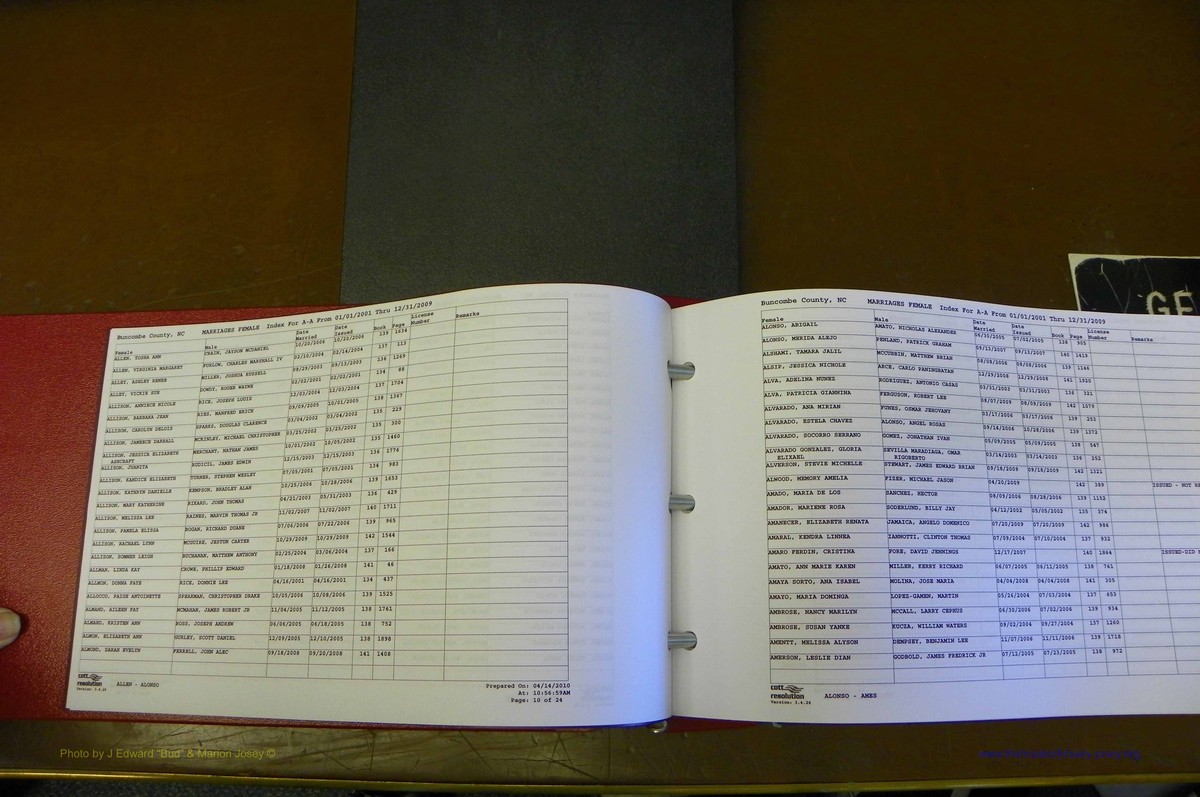 Buncombe County, NC MARRIAGES FEMALE Index For A-A From 01/01/2001 Thru 12/31/2009
Female Male Date Married Date Issued Book Page License Number Remarks
ALLEN, YOSHA ANN CRAIN, JAYSON MCDANIEL 10/20/2006 10/20/2006 139 1636
ALLEN, VIRGINIA MARGARET PURLOW, CHARLES MARSHALL IV 02/10/2004 02/14/2004 137 113
ALLEY, ASHLEY RENEE MILLER, JOSHUA RUSSELL 08/29/2003 09/13/2003 136 1269
ALLEY, VICKIE SUE DOWDY, ROGER WAYNE 02/02/2001 02/02/2001 134 88
ALLISON, ANNIECE NICOLE RICE, JOSEPH LOUIS 12/03/2004 12/03/2004 137 1704
ALLISON, BARBARA JEAN RIES, MANFRED ERICH 09/09/2005 10/01/2005 138 1367
ALLISON, CAROLYN DELOIS SPARKS, DOUGLAS CLARENCE 03/04/2002 03/04/2002 135 229
ALLISON, JAMEECE DARRALL MCKINLEY, MICHAEL CHRISTOPHER 03/25/2002 03/25/2002 135 300
ALLISON, JESSICA ELIZABETH ASHCRAFT MERCHANT, NATHAN JAMES 10/01/2002 10/05/2002 135 1460
ALLISON, JUANITA RUDICIL, JAMES EDWIN 12/15/2003 12/15/2003 136 1774
ALLISON, KANDICE ELIZABETH TURNER, STEPHEN WESLEY 07/05/2001 07/05/2001 134 983
ALLISON, KATHRYN DANIELLE KEMPSON, BRADLEY ALAN 10/25/2006 10/28/2006 139 1653
ALLISON, MARY KATHERINE RIKARD, JOHN THOMAS 04/21/2003 05/31/2003 136 629
ALLISON, MELISSA LEE RAINES, MARVIN THOMAS JR 11/02/2007 11/02/2007 140 1711
ALLISON, PAMELA ELISSA ROGAN, RICHARD DUANE 07/06/2006 07/22/2006 139 965
ALLISON, RACHAEL LYNN MCGUIRE, JESTON CARTER 10/29/2009 10/29/2009 142 1544
ALLISON, SOMMER LEIGH BUCHANAN, MATTHEW ANTHONY 02/25/2004 03/06/2004 137 166
ALLMAN, LINDA KAY CROWE, PHILLIP LEE 01/18/2008 01/26/2008 141 46
ALLMON, DONNA FAYE RICE, DONNIE LEE 04/16/2001 04/16/2001 134 437
ALLOCCO, PAIGE ANTOINETTE SPEARMAN, CHRISTOPHER DRAKE 10/05/2006 10/08/2006 139 1525
ALMAND, AILEEN FAY MCMAHAN, JAMES ROBERT JR 11/04/2005 11/12/2005 138 1761
ALMAND, KRISTEN ANN ROSS, JOSEPH ANDREW 06/06/2005 06/18/2005 138 752
ALMON, ELIZABETH ANN GURLEY, SCOTT DANIEL 12/09/2005 12/10/2005 138 1898
ALMOND, SARAH EVELYN FERRELL, JOHN ALEC 09/18/2008 09/20/2008 141 1408
cott resolution
Version: 3.4.26
ALLEN - ALONSO
Prepared On: 04/14/2010
At: 10:56:59AM
Page: 10 of 24
Buncombe County, NC MARRIAGES FEMALE Index For A-A From 01/01/2001 Thru 12/31/2009
Female Male Date Married Date Issued Book Page License Number Remarks
ALONSO, ABIGAIL AMATO, NICHOLAS ALEXANDER 06/30/2005 07/02/2005 138 905
ALONSO, MERIDA ALEJO PENLAND, PATRICK GRAHAM 09/13/2007 09/13/2007 140 1419
ALSHAMI, TAMARA JALIL MCCUBBIN, MATTHEW BRIAN 08/08/2006 08/08/2006 139 1146
ALSIP, JESSICA NICHOLE ARCE, CARLO PANINGBATAN 12/29/2008 12/29/2008 141 1920
ALVA, ADELINA NUNEZ RODRIGUEZ, ANTONIO CASAS 03/31/2003 03/31/2003 136 321
ALVA, PATRICIA GIANNINA FERGUSON, ROBERT LEE 08/07/2009 08/09/2009 142 1079
ALVARADO, ANA MIRIAN FUNES, OSMAR JEHOVANY 03/17/2006 03/17/2006 139 253
ALVARADO, ESTELA CHAVEZ ALONSO, ANGEL ROSAS 09/14/2006 10/28/2006 139 1372
ALVARADO, SOCORRO SERRANO GOMEZ, JONATHAN IVAN 05/09/2005 05/09/2005 138 547
ALVARADO GONZALEZ, GLORIA ELIXAEL SEVILLA MARADIAGA, OMAR RIGOBERTO 03/14/2003 03/14/2003 136 252
ALVERSON, STEVIE MICHELLE STEWART, JAMES EDWARD BRIAN 09/18/2009 09/18/2009 142 1321
ALWOOD, MEMORY AMELIA FIZER, MICHAEL JASON 04/20/2009 142 389 ISSUED - NOT RE
AMADO, MARIA DE LOS SANCHES, HECTOR 08/05/2006 08/28/2006 139 1152
AMADOR, MARIENE ROSA SODERLUND, BILLY JAY 04/12/2002 05/05/2002 135 374
AMANECER, ELIZABETH RENATA JAMAICA, ANGELO DOMENICO 07/20/2009 07/20/2009 142 984
AMARAL, KENDRA LINNEA IANNOTTI, CLINTON THOMAS 07/09/2004 07/10/2004 137 932
AMARO FERDIN, CRISTINA FORE, DAVID JENNINGS 12/17/2007 140 1864 ISSUED-DID
AMATO, ANN MARIE KAREN MILLER, KERRY RICHARD 06/07/2005 06/11/2005 138 761
AMAYA SORTO, ANA ISABEL MOLINA, JOSE MARIA 04/04/2008 04/04/2008 141 305
AMAYO, MARIA DOMINGA LOPEZ-GAMEN, MARTIN 05/26/2004 07/03/2004 137 653
AMBROSE, NANCY MARILYN MCCALL, LARRY CEPHUS 06/30/2006 07/02/2006 139 934
AMBROSE, SUSAN YANKE KUCZA, WILLIAM WATERS 09/02/2004 09/27/2004 137 1260
AMENTT, MELISSA ALYSON DEMPSEY, BENJAMIN LEE 11/07/2006 11/11/2006 139 1718
AMERSON, LESLIE DIAN GODBOLD, JAMES FREDRICK JR 07/12/2005 07/23/2005 138 972
cott resolution
Version: 3.4.26
ALONSO - AMES
GE
Photo by J Edward "Bud" & Marion Josey ©